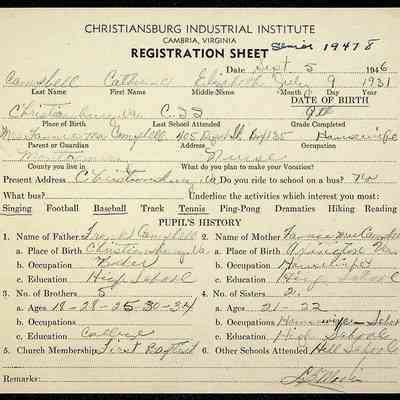 CHRISTIANSBURG INDUSTRIAL INSTITUTE
CAMBRIA, VIRGINIA
REGISTRATION SHEET Senior 1947-8
Date Sept 5 1946
Campbell Catherine Elizabeth July 9 1931
Last Name First Name Middle Name Month Day Year
DATE OF BIRTH
Christiansburg, Va. C.I.I. 9th
Place of Birth Last School Attended Grade Completed
Mrs. Fannie Mae Campbell 405 St. Box 135 Housewife
Parent or Guardian Address Occupation
Montgomery Nurse
County you live in What do you plan to make your Vocation?
Present Address Christiansburg, Va Do you ride to school on a bus? No
What bus? Underline the activities which interest you most:
Singing Football Baseball Track Tennis Ping-Pong Dramatics Hiking Reading
PUPIL'S HISTORY
1. Name of Father Frank Campbell 2. Name of Mother Fannie Mae Campbell
a. Place of Birth Christiansburg, Va a. Place of Birth
b. Occupation b. Occupation Housewife
c. Education High School c. Education High School
3. No. of Brothers 5 4. No. of Sisters 2
a. Ages 18-28-25-30-34 a. Ages 21-22
b. Occupation b. Occupations Housewife - School
c. Education College c. Education High School
5. Church Membership First Baptist 6. Other Schools Attended Hill School
Remarks: